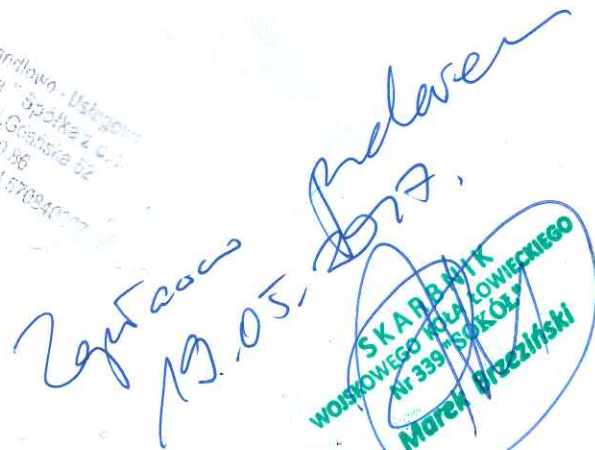 Handlowo - Usługowe
Spółka z o.o.
Gdańska 52
Zapłacono przelewem
19.05.2017.
SKARBNIK
WOJSKOWEGO KOŁA ŁOWIECKIEGO
Nr 339 "SOKÓŁ"
Marek Brzeziński